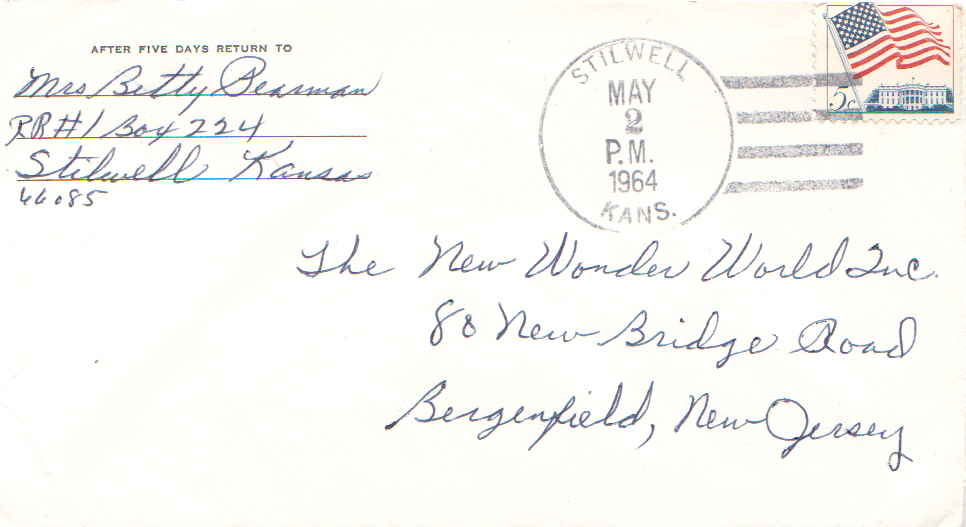 AFTER FIVE DAYS RETURN TO
Mrs Betty Pearman
RR#1 Box 224
Stilwell Kansas
66085
STILWELL
MAY
2
P.M.
1964
KANS.
5c
The New Wonder World Inc.
80 New Bridge Road
Bergenfield, New Jersey